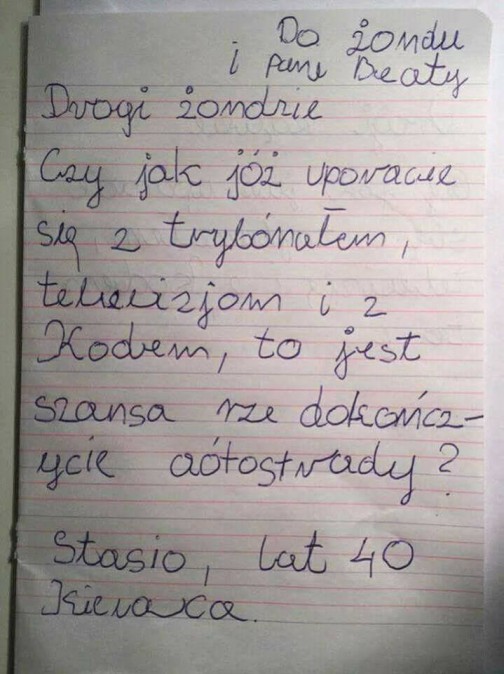 Do żondu
i pani Beaty
Drogi żondzie
Czy jak jóż uporacie
się z trybónałem,
telewizjom i z
Kodem, to jest
szansa rze dokończ-
ycie aótostrady?
Stasio, lat 40
Kierowca.